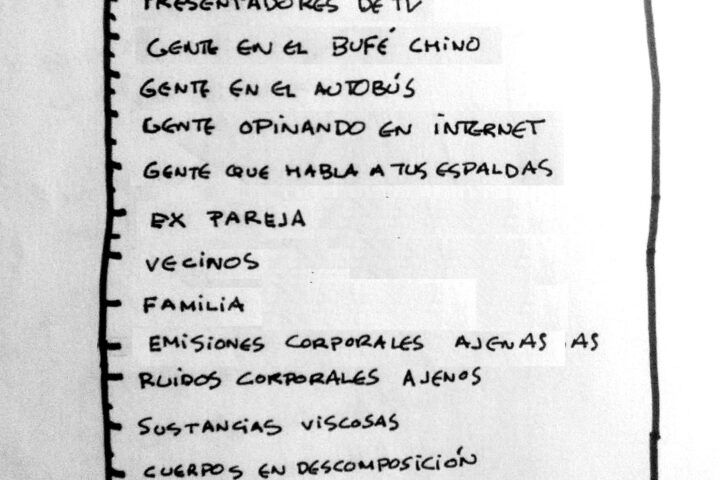 PRESENTADORES DE TV
GENTE EN EL BUFÉ CHINO
GENTE EN EL AUTOBÚS
GENTE OPINANDO EN INTERNET
GENTE QUE HABLA A TUS ESPALDAS
EX PAREJA
VECINOS
FAMILIA
EMISIONES CORPORALES AJENAS AS
RUIDOS CORPORALES AJENOS
SUSTANCIAS VISCOSAS
CUERPOS EN DESCOMPOSICIÓN